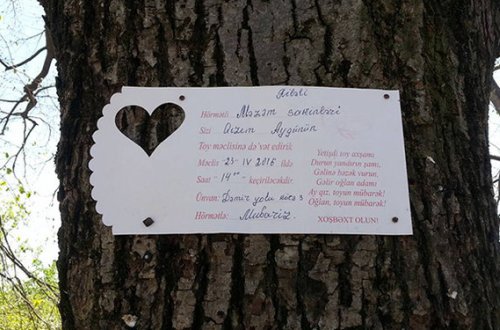 Hörmətli Məzəm sakinləri
Sizi Qızım Aygünün
Toy məclisinə də'vət edirik
Məclis 23-IV 2016 ildə
Saat 14⁰⁰ keçiriləcəkdir.
Ünvan: Dəmir yolu küçə 3
Hörmətlə: Mubariz.
Yetişdi toy axşamı
Durun yandırın şamı,
Gəlinə bəzək vurun,
Gəlir oğlan adamı
Ay qız, toyun mübarək!
Oğlan, toyun mübarək!
XOŞBƏXT OLUN!